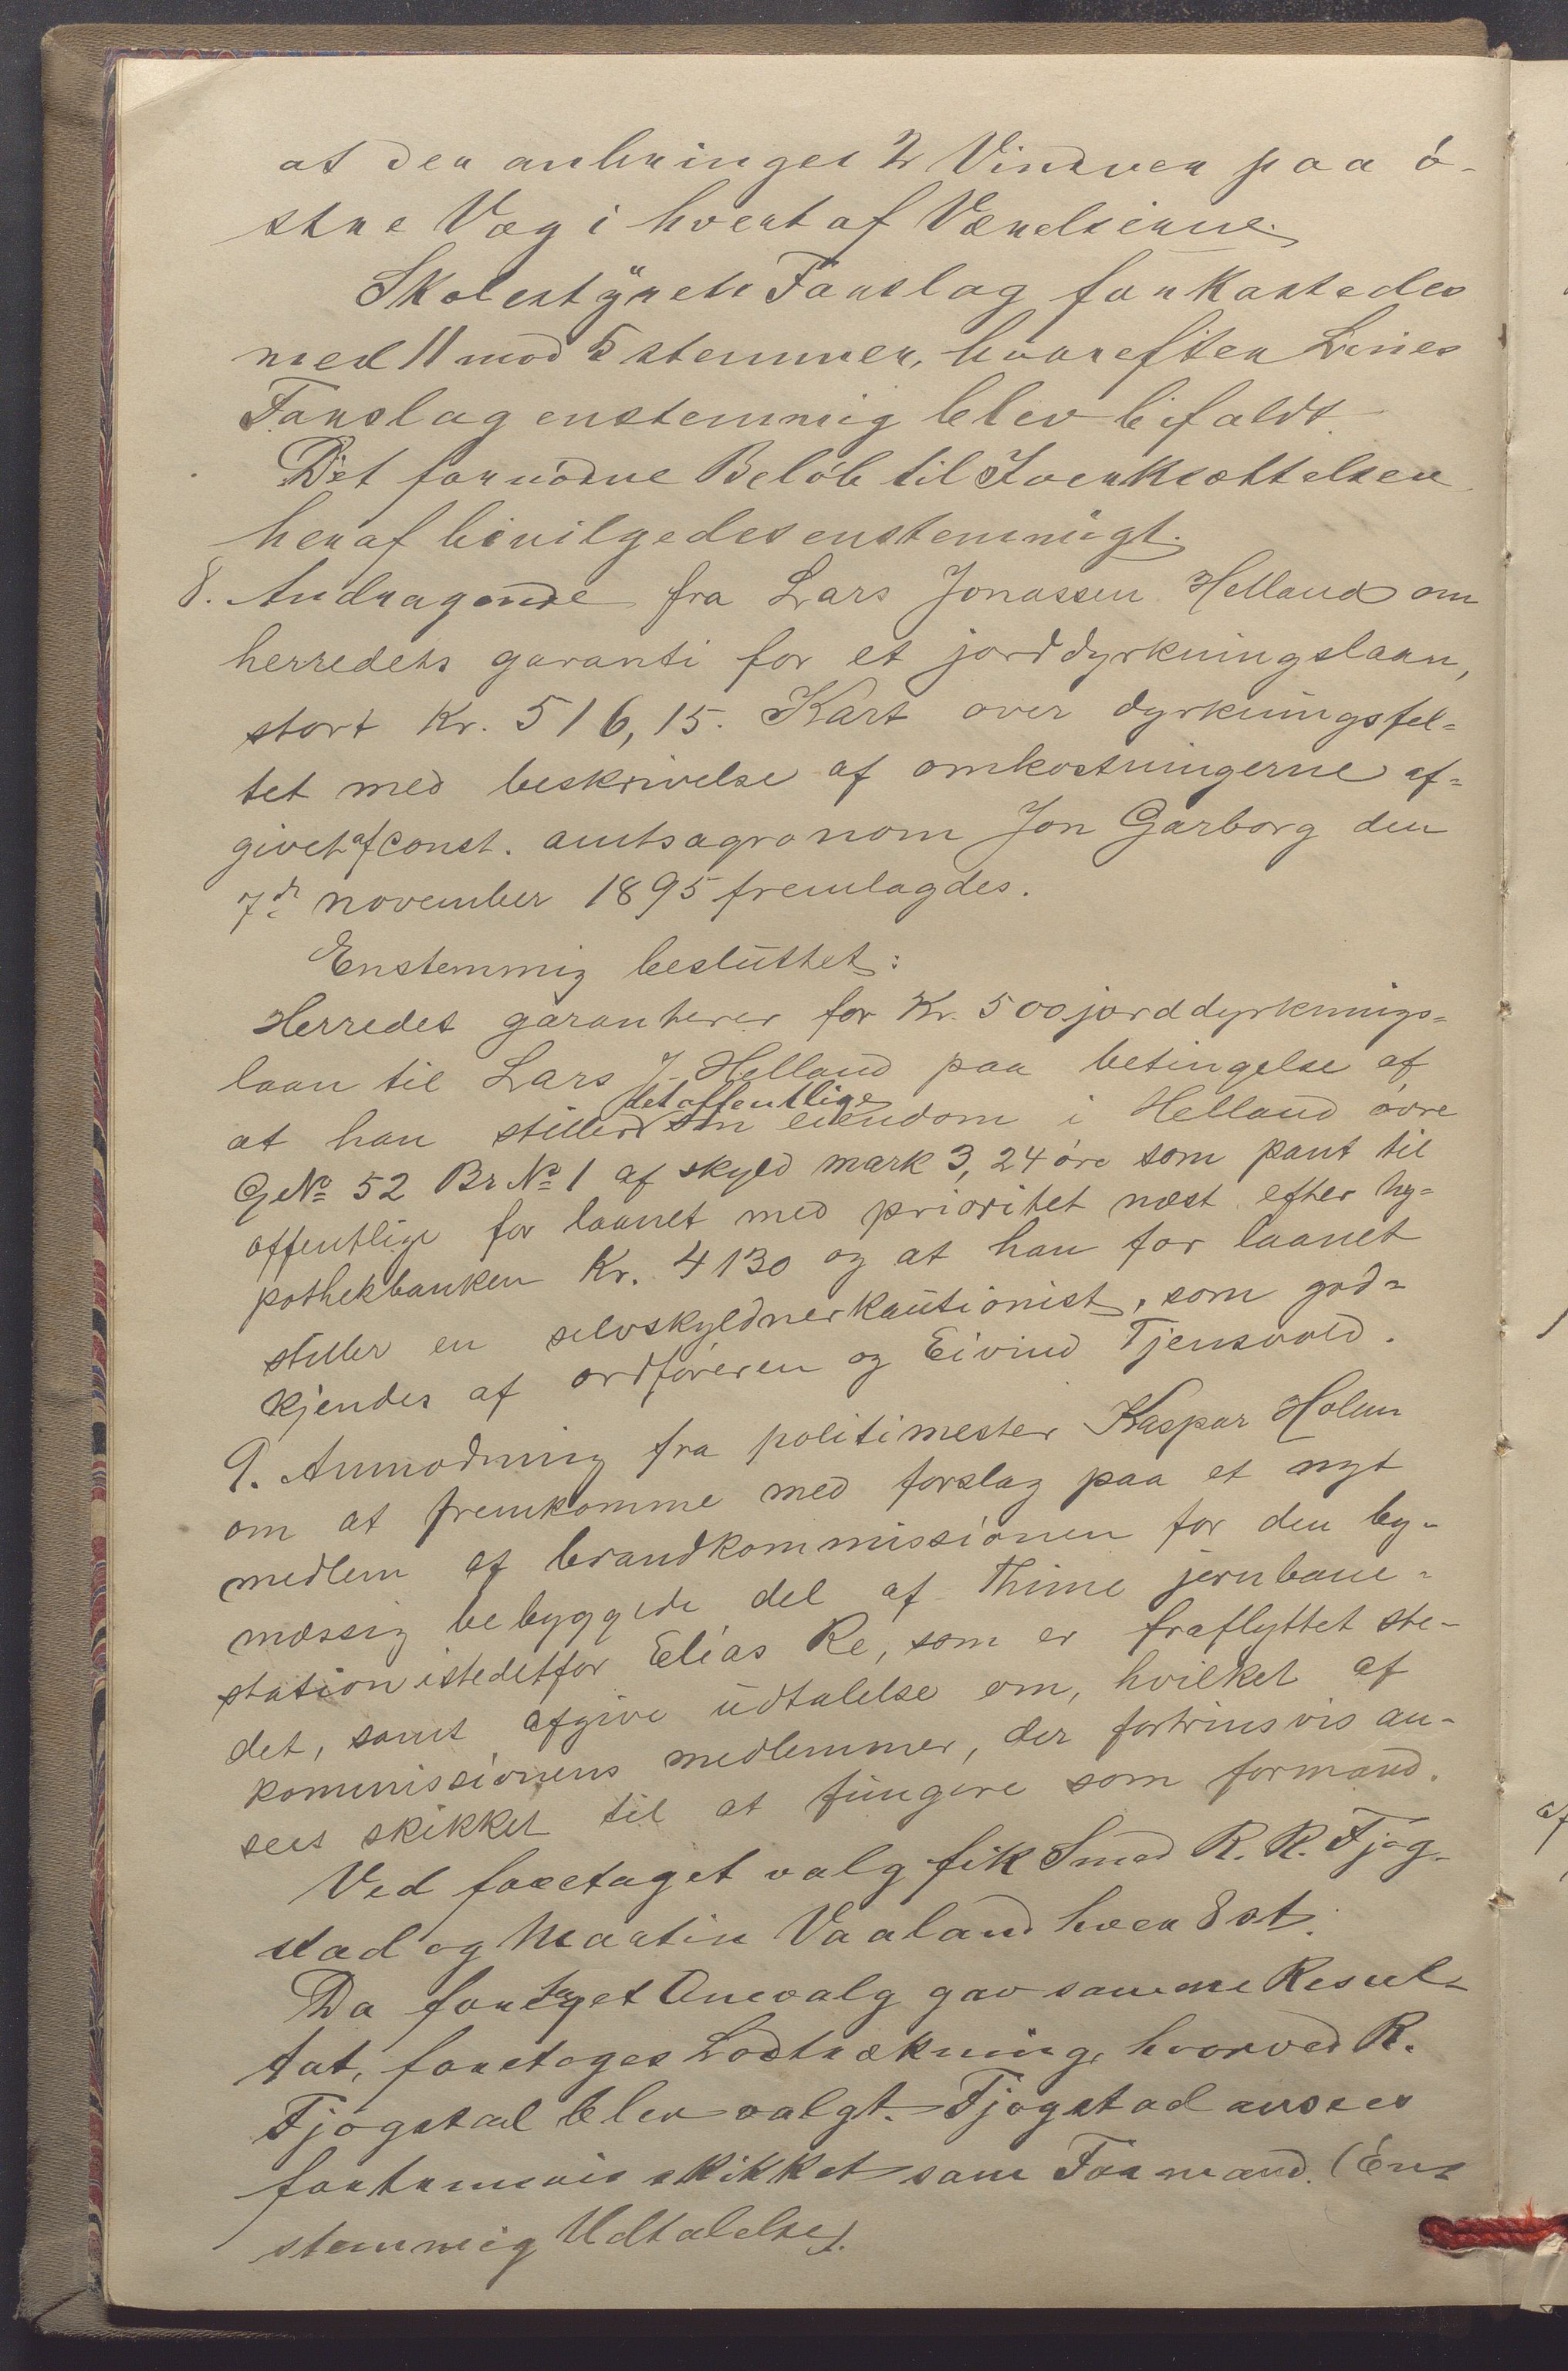 at der anbringes 2 Vinduer paa ø-
stre Væg i hvert af Værelserne.
Skolestÿrets Forslag forkastedes
med 11 mod 5 stemmer, hvorefter Lines
Forslag enstemmig blev bifaldt.
Det fornødne Beløb til Iverksættelsen
heraf bevilgedes enstemmigt.
8. Andragende fra Lars Jonassen Helland om
herredets garanti for et jorddyrkningslaan,
stort Kr. 516,15. Kart over dyrkningsfel=
tet med beskrivelse af omkostningerne af=
givet af const. amtsagronom Jon Garborg den
7de november 1895 fremlagdes.
Enstemmig besluttet:
Herredet garanterer for Kr. 500 jorddyrknings=
laan til Lars J. Helland paa betingelse af
det offentlige
at han stiller sin eiendom i Helland øvre
G№ 52 Br № 1 af skyld mark 3,24 øre som pant til
offentlige for laanet med prioritet næst efter hy=
pothekbanken Kr. 4130 og at han for laanet
stiller en selvskyldnerkautionist, som god=
kjendes af ordføreren og Eivind Tjensvold.
9. Anmodning fra politimester Kaspar Holum
om at fremkomme med forslag paa et nyt
medlem af brandkommissionen for den by-
mæssig bebyggede del af Thime jernbane=
station istedetfor Elias Re, som er fraflyttet ste-
det, samt afgive udtalelse om, hvilket af
kommissionens medlemmer, der fortrinsvis an-
sees skikket til at fungere som formand.
Ved foretaget valg fik Smed R. R. Fjog-
stad og Martin Vaaland hver 8 st.
Da foretaget Omvalg gav samme Resul-
tat, foretoges Lodtrækning, hvorved R.
Fjogstad blev valgt. Fjogstad ansees
fortrinsvis skikket som Formand. (En-
stemmig Udtalelse).
af